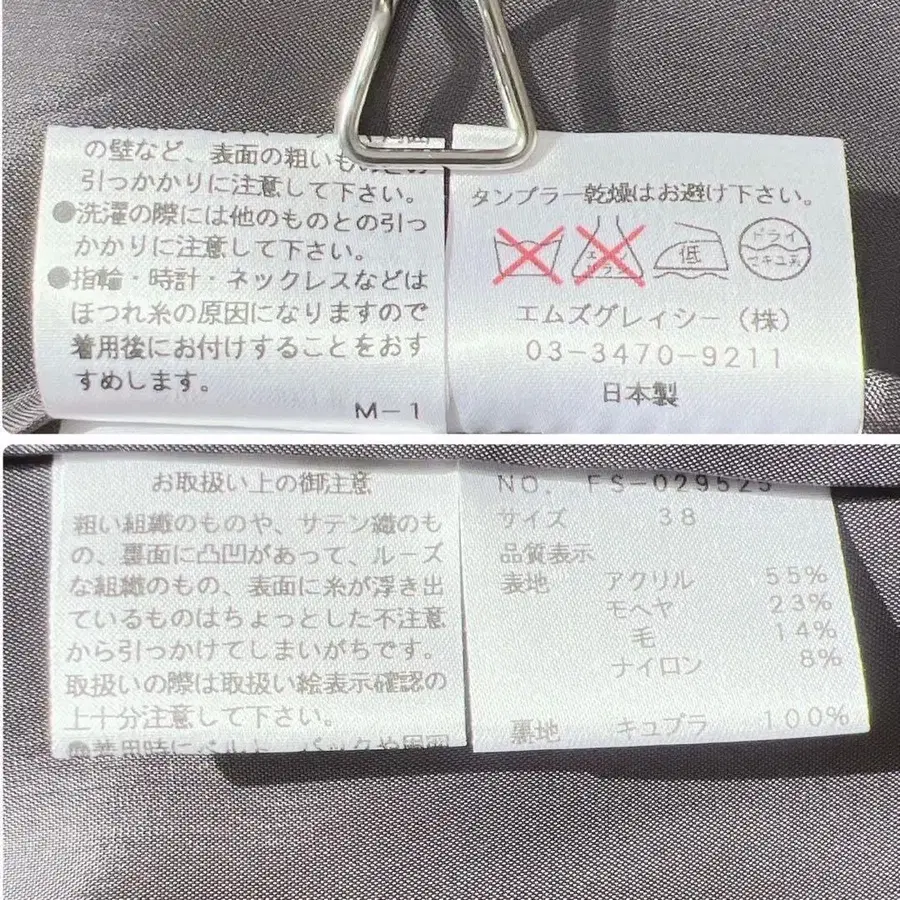 の壁など、表面の粗いもの
引っかかりに注意して下さい。
●洗濯の際には他のものとの引っ
かかりに注意して下さい。
●指輪・時計・ネックレスなどは
ほつれ糸の原因になりますので
着用後にお付けすることをおす
すめします。
M-1
タンブラー乾燥はお避け下さい。
エンソ
サラシ
低
ドライ
セキユ系
エムズグレイシー(株)
03-3470-9211
日本製
お取扱い上の御注意
粗い組織のものや、サテン織のも
の、裏面に凸凹があって、ルーズ
な組織のもの、表面に糸が浮き出
ているものはちょっとした不注意
から引っかけてしまいがちです。
取扱いの際は取扱い絵表示確認の
上十分注意して下さい。
●着用時にベルト、バックや周囲
NO. FS-029525
サイズ 38
品質表示
表地 アクリル 55%
モヘヤ 23%
毛 14%
ナイロン 8%
裏地 キュプラ 100%